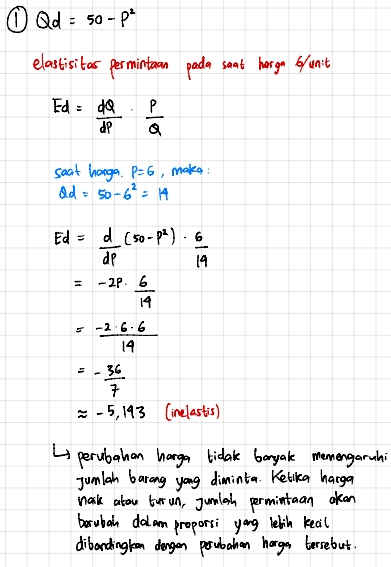 ① Qd = 50 - P²
elastisitas permintaan pada saat harga 6/unit
Ed = dQ/dP · P/Q
saat harga P=6, maka:
Qd = 50 - 6² = 14
Ed = d/dP (50-P²) · 6/14
= -2P · 6/14
= -2·6·6/14
= -36/7
≈ -5,143 (inelastis)
↳ perubahan harga tidak banyak memengaruhi
jumlah barang yang diminta. Ketika harga
naik atau turun, jumlah permintaan akan
berubah dalam proporsi yang lebih kecil
dibandingkan dengan perubahan harga tersebut.